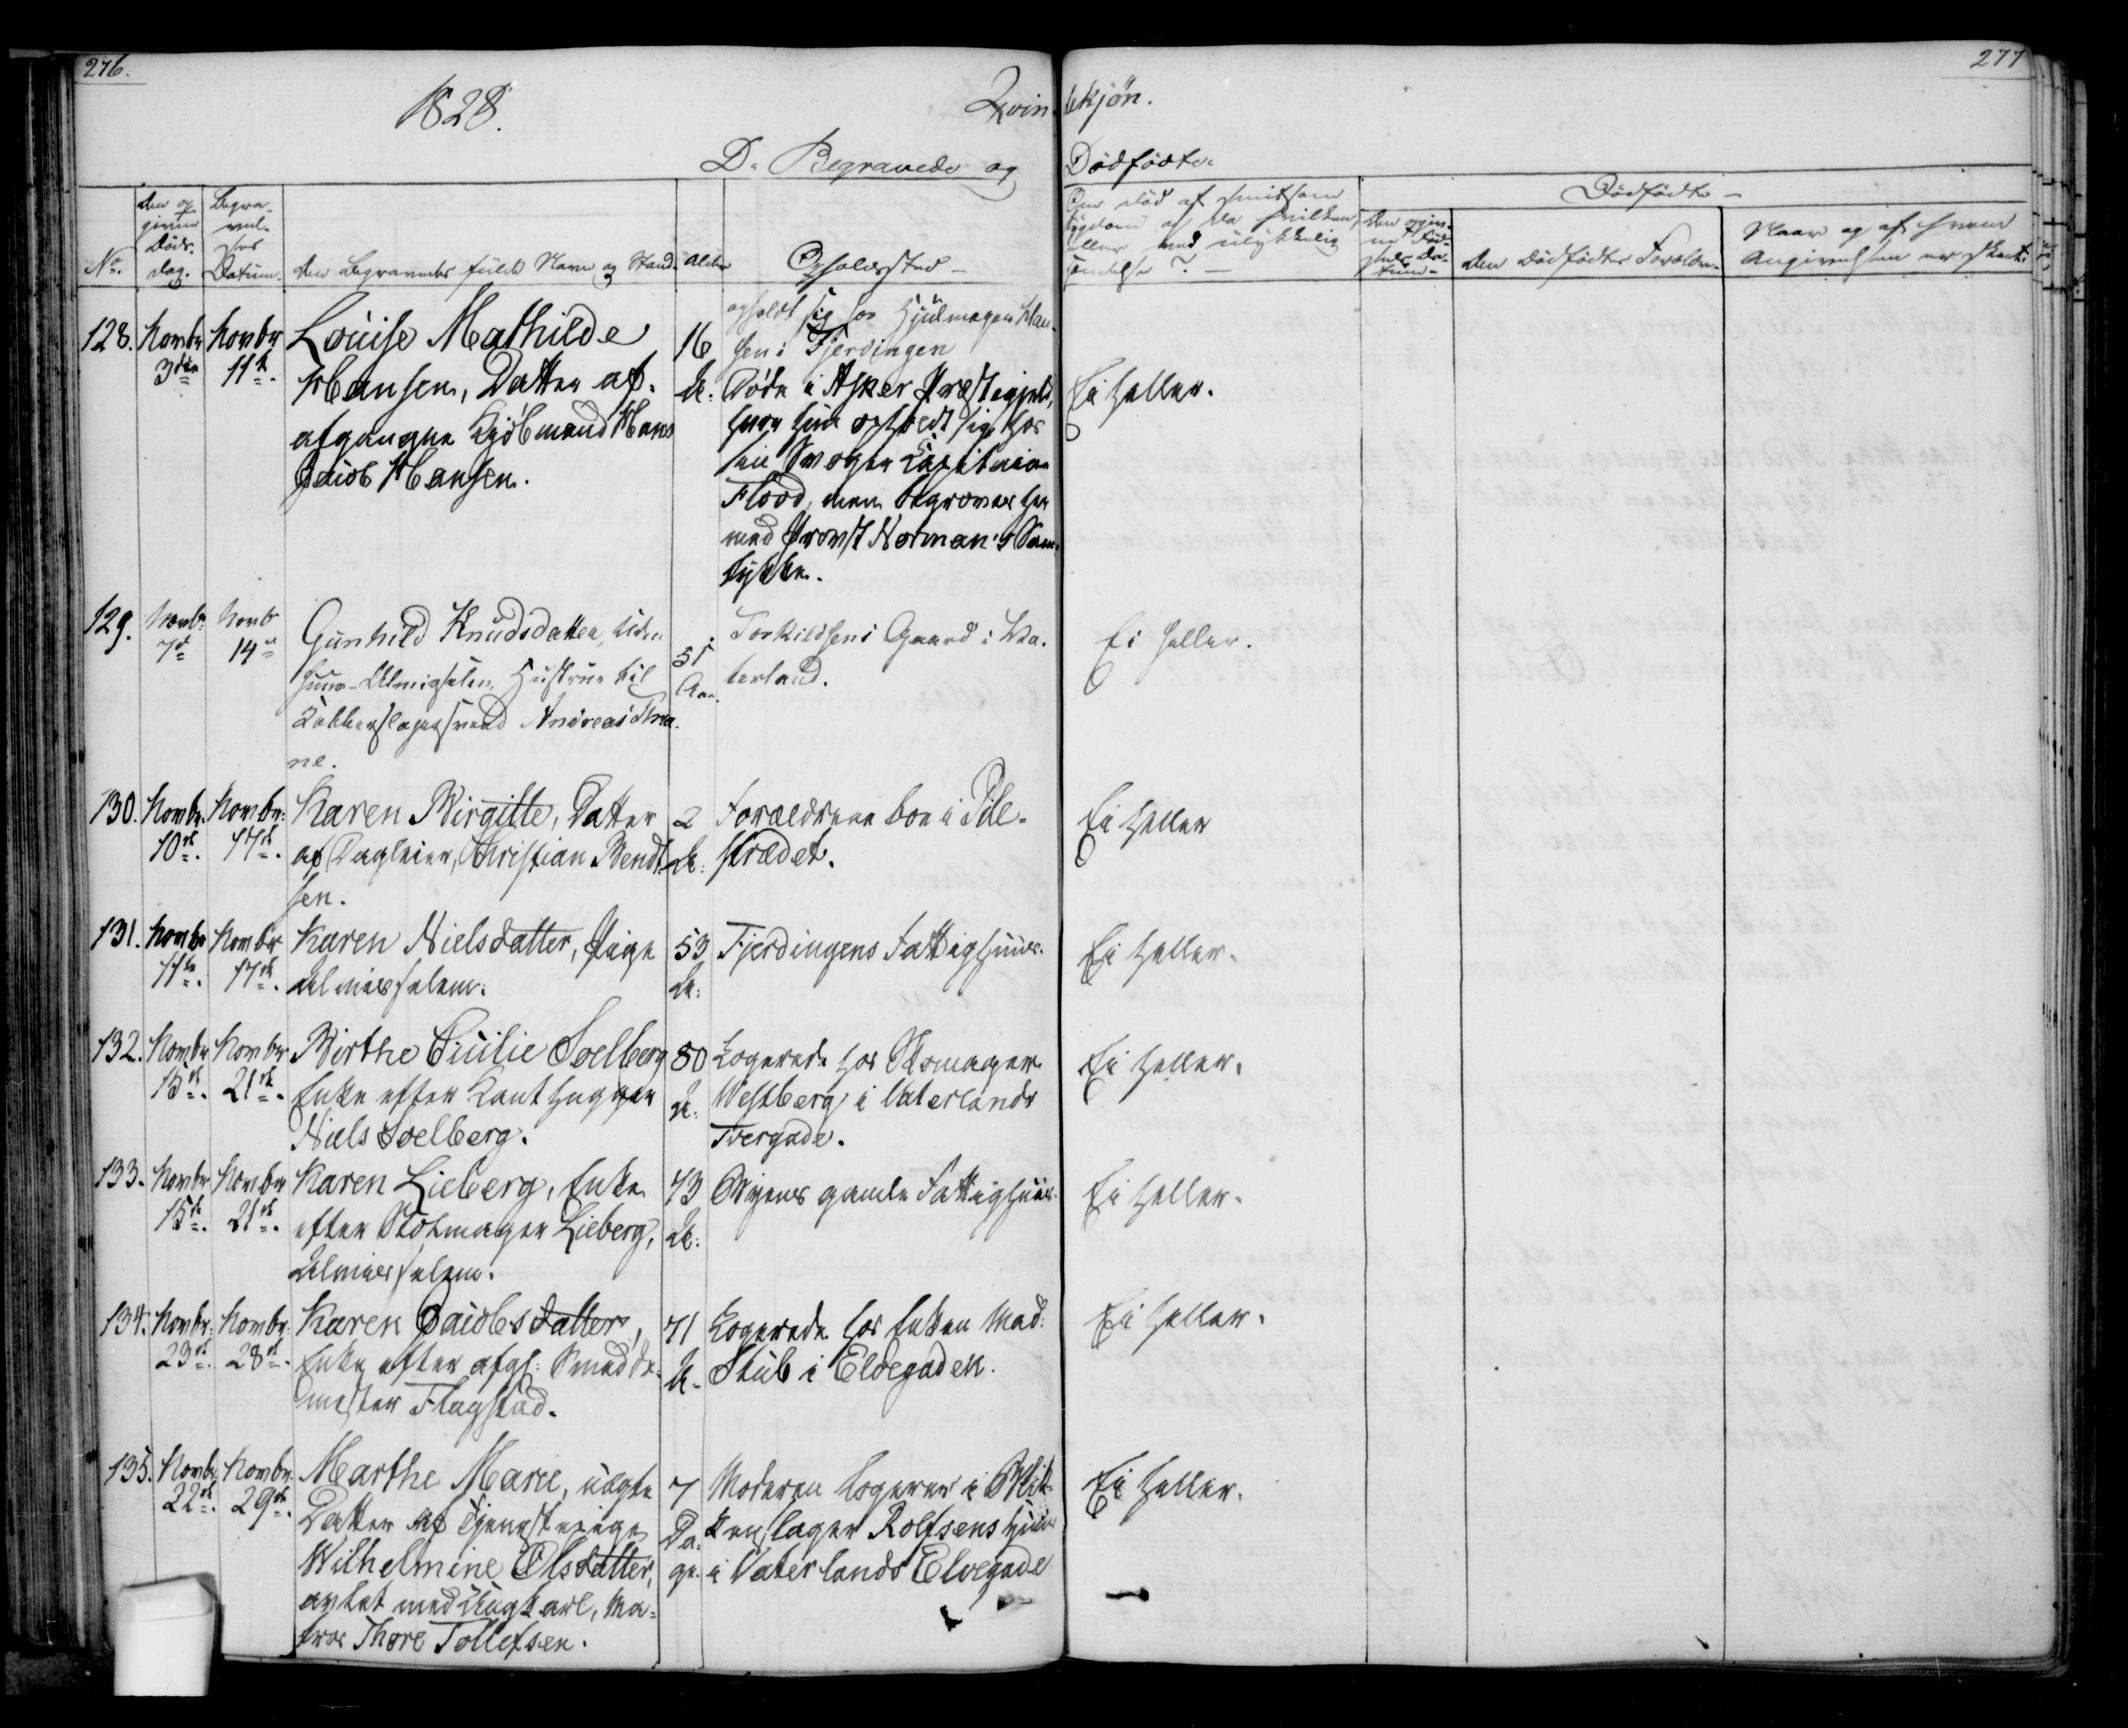 276.
277
1828.
Qvindekjön.
D. Begravede og Dödfödte.
No.
Den opgivne Döds-dag.
Begravelses Datum.
Den Begravedes fulde Navn og Stand.
Alder
Opholdssted
Om död af smitsom
Sygdom og da hvilken,
eller ved ulykkelig
hændelse?
Dödfödte
Den opgivne Födsels-Datum
Den Dödfödtes Forældre
Naar og af hvem
Angivelsen er skeet.
128. Novbr 3die Novbr 11te.
Louise Mathilde
Hansen, Datter af
afgangne Kjöbmand Hans
Jacob Hansen.
16 A:
opholdt sig hos Hjulmager Han-
sen i Fjerdingen
Döde i Asker Præstegjeld,
hvor hun opholdt sig hos
sin Svoger Capitain
Flood, men begraves her
med Provst Norman's Sam-
tykke.
Ei heller.
129. Novbr 7de Novb 14de
Gunhild Knudsdatter, uden
huus-Almisselem, Hustrue til
Kobberslagersvend Andreas Thra-
ne.
51 Aar.
Torkildsens Gaard i Va-
terland.
Ei heller.
130. Novbr. 10de. Novbr: 17de.
Karen Birgitte, Datter
af Dagleier, Christian Bendt-
sen.
2 A:
Forældrene boe i Pile-
strædet.
Ei heller
131. Novbr 11te. Novbr 17de.
Karen Nielsdatter, Pige
Almisselem.
53 A:
Fjerdingens Fattighuus.
Ei heller.
132. Novbr 15de. Novbr 21de.
Birthe Cicilie Soelberg
Enke efter Kanthugger
Niels Soelberg.
80 A:
Logerede hos Skomager
Westberg i Vaterlands
Tvergade.
Ei heller.
133. Novbr 15de. Novbr 21de.
Karen Lieberg, Enke
efter Stolmager Lieberg,
Almisselem.
73 A:
Byens gamle Fattighuus.
Ei heller.
134. Novbr: 23de. Novbr: 28de.
Karen Jacobsdatter,
Enke efter afg: Smedde-
mester Flagstad.
71 A.
Logerede hos Enken Mad:
Stub i Elvegaden.
Ei heller.
135. Novbr: 22de. Novbr. 29de.
Marthe Marie, uægte
Datter af Tjenestepige
Wilhelmine Olsdatter,
avlet med Ungkarl, Ma-
tros Thore Tollefsen.
7 Da-
ge.
Moderen logerer i Blik-
kenslager Rolfsens Huus
i Vaterlands Elvegade
Ei heller.